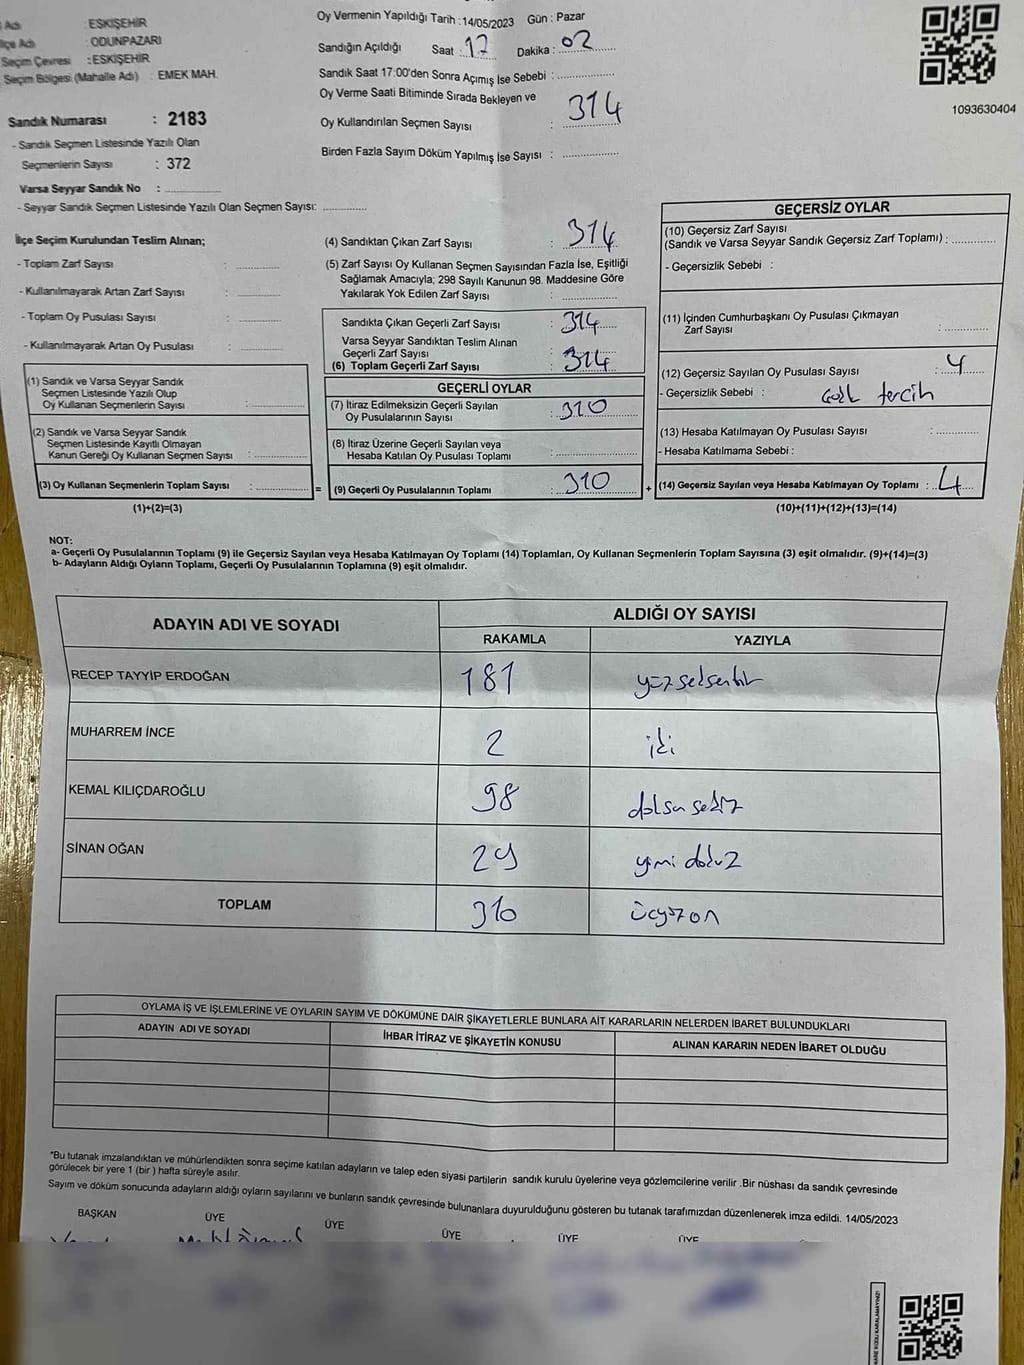 Adı : ESKİŞEHİR
İlçe Adı : ODUNPAZARI
Seçim Çevresi : ESKİŞEHİR
Seçim Bölgesi (Mahalle Adı) : EMEK MAH.
Sandık Numarası : 2183
- Sandık Seçmen Listesinde Yazılı Olan
Seçmenlerin Sayısı : 372
Varsa Seyyar Sandık No :
- Seyyar Sandık Seçmen Listesinde Yazılı Olan Seçmen Sayısı:
Oy Vermenin Yapıldığı Tarih : 14/05/2023 Gün : Pazar
Sandığın Açıldığı Saat : 17 Dakika : 02
Sandık Saat 17:00'den Sonra Açımış İse Sebebi :
Oy Verme Saati Bitiminde Sırada Bekleyen ve
Oy Kullandırılan Seçmen Sayısı : 314
Birden Fazla Sayım Döküm Yapılmış İse Sayısı :
1093630404
İlçe Seçim Kurulundan Teslim Alınan;
- Toplam Zarf Sayısı :
- Kullanılmayarak Artan Zarf Sayısı :
- Toplam Oy Pusulası Sayısı :
- Kullanılmayarak Artan Oy Pusulası :
(1) Sandık ve Varsa Seyyar Sandık
Seçmen Listesinde Yazılı Olup
Oy Kullanan Seçmenlerin Sayısı :
(2) Sandık ve Varsa Seyyar Sandık
Seçmen Listesinde Kayıtlı Olmayan
Kanun Gereği Oy Kullanan Seçmen Sayısı :
(3) Oy Kullanan Seçmenlerin Toplam Sayısı : =
(1)+(2)=(3)
(4) Sandıktan Çıkan Zarf Sayısı : 314
(5) Zarf Sayısı Oy Kullanan Seçmen Sayısından Fazla İse, Eşitliği
Sağlamak Amacıyla; 298 Sayılı Kanunun 98. Maddesine Göre
Yakılarak Yok Edilen Zarf Sayısı :
Sandıkta Çıkan Geçerli Zarf Sayısı : 314
Varsa Seyyar Sandıktan Teslim Alınan
Geçerli Zarf Sayısı :
(6) Toplam Geçerli Zarf Sayısı : 314
GEÇERLİ OYLAR
(7) İtiraz Edilmeksizin Geçerli Sayılan
Oy Pusulalarının Sayısı : 310
(8) İtiraz Üzerine Geçerli Sayılan veya
Hesaba Katılan Oy Pusulası Toplamı :
(9) Geçerli Oy Pusulalarının Toplamı : 310 +
GEÇERSİZ OYLAR
(10) Geçersiz Zarf Sayısı
(Sandık ve Varsa Seyyar Sandık Geçersiz Zarf Toplamı) :
- Geçersizlik Sebebi :
(11) İçinden Cumhurbaşkanı Oy Pusulası Çıkmayan
Zarf Sayısı :
(12) Geçersiz Sayılan Oy Pusulası Sayısı : 4
- Geçersizlik Sebebi : Çok tercih
(13) Hesaba Katılmayan Oy Pusulası Sayısı :
- Hesaba Katılmama Sebebi :
(14) Geçersiz Sayılan veya Hesaba Katılmayan Oy Toplamı : 4
(10)+(11)+(12)+(13)=(14)
NOT:
a- Geçerli Oy Pusulalarının Toplamı (9) ile Geçersiz Sayılan veya Hesaba Katılmayan Oy Toplamı (14) Toplamları, Oy Kullanan Seçmenlerin Toplam Sayısına (3) eşit olmalıdır. (9)+(14)=(3)
b- Adayların Aldığı Oyların Toplamı, Geçerli Oy Pusulalarının Toplamına (9) eşit olmalıdır.
ADAYIN ADI VE SOYADI ALDIĞI OY SAYISI
RAKAMLA YAZIYLA
RECEP TAYYİP ERDOĞAN 181 yüzseksenbir
MUHARREM İNCE 2 iki
KEMAL KILIÇDAROĞLU 98 doksan sekiz
SİNAN OĞAN 29 yirmi dokuz
TOPLAM 310 üçyüz on
OYLAMA İŞ VE İŞLEMLERİNE VE OYLARIN SAYIM VE DÖKÜMÜNE DAİR ŞİKAYETLERLE BUNLARA AİT KARARLARIN NELERDEN İBARET BULUNDUKLARI
ADAYIN ADI VE SOYADI İHBAR İTİRAZ VE ŞİKAYETİN KONUSU ALINAN KARARIN NEDEN İBARET OLDUĞU
*Bu tutanak imzalandıktan ve mühürlendikten sonra seçime katılan adayların ve talep eden siyasi partilerin sandık kurulu üyelerine veya gözlemcilerine verilir .Bir nüshası da sandık çevresinde
görülecek bir yere 1 (bir ) hafta süreyle asılır.
Sayım ve döküm sonucunda adayların aldığı oyların sayılarını ve bunların sandık çevresinde bulunanlara duyurulduğunu gösteren bu tutanak tarafımızdan düzenlenerek imza edildi. 14/05/2023
BAŞKAN ÜYE ÜYE ÜYE ÜYE ÜYE